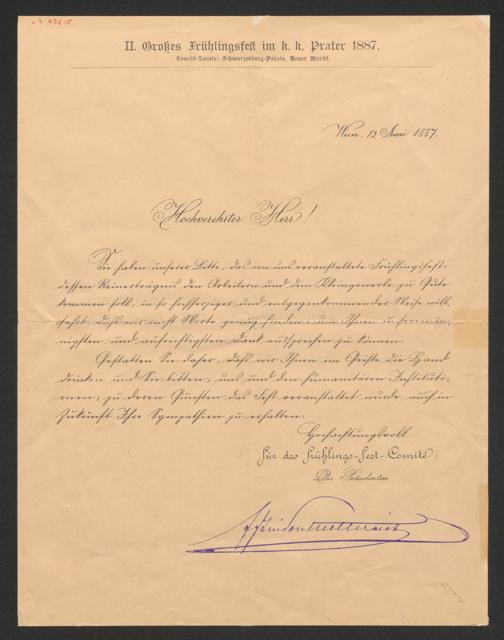 II. Großes Frühlingsfest im k. k. Prater 1887.
Comité-Locale: Schwarzenberg-Palais, Neuer Markt.
Wien, 12 Juni 1887.
Hochverehrter Herr!
Sie haben unserer Bitte, das von uns veranstaltete Frühlingsfest,
dessen Reinerträgnis den Arbeitern und dem Kleingewerbe zu Gute
kommen soll, in so hochherziger und entgegenkommender Weise will-
fahrt, daß wir nicht Worte genug finden um Ihnen unseren in-
nigsten und aufrichtigsten Dank aussprechen zu können.
Gestatten Sie daher, daß wir Ihnen im Geiste die Hand
drücken und Sie bitten, uns und den humanitären Instituti-
onen, zu deren Gunsten das Fest veranstaltet wurde auch in
Zukunft Ihre Sympathien zu erhalten.
Hochachtungsvoll
Für das Frühlings-Fest-Comité:
Die Präsidentin